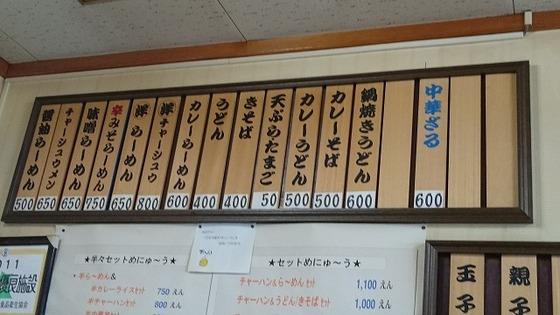 醤油らーめん
500
チャーシュウメン
650
味噌らーめん
650
辛みそらーめん
750
洋らーめん
650
洋チャーシュウ
800
カレーらーめん
600
うどん
400
きそば
400
天ぷらたまご
50
カレーうどん
500
カレーそば
500
鍋焼きうどん
600
中華ざる
600
★半々セットめにゅ〜う★
・半ら〜めん&
半カレーライスセット 750 えん
半チャーハンセット 800 えん
★セットめにゅ〜う★
チャーハン&ら〜めんセット 1,100 えん
チャーハン&うどん/きそばセット 1,000 えん
011
優良施設
食品衛生協会
玉子
親子